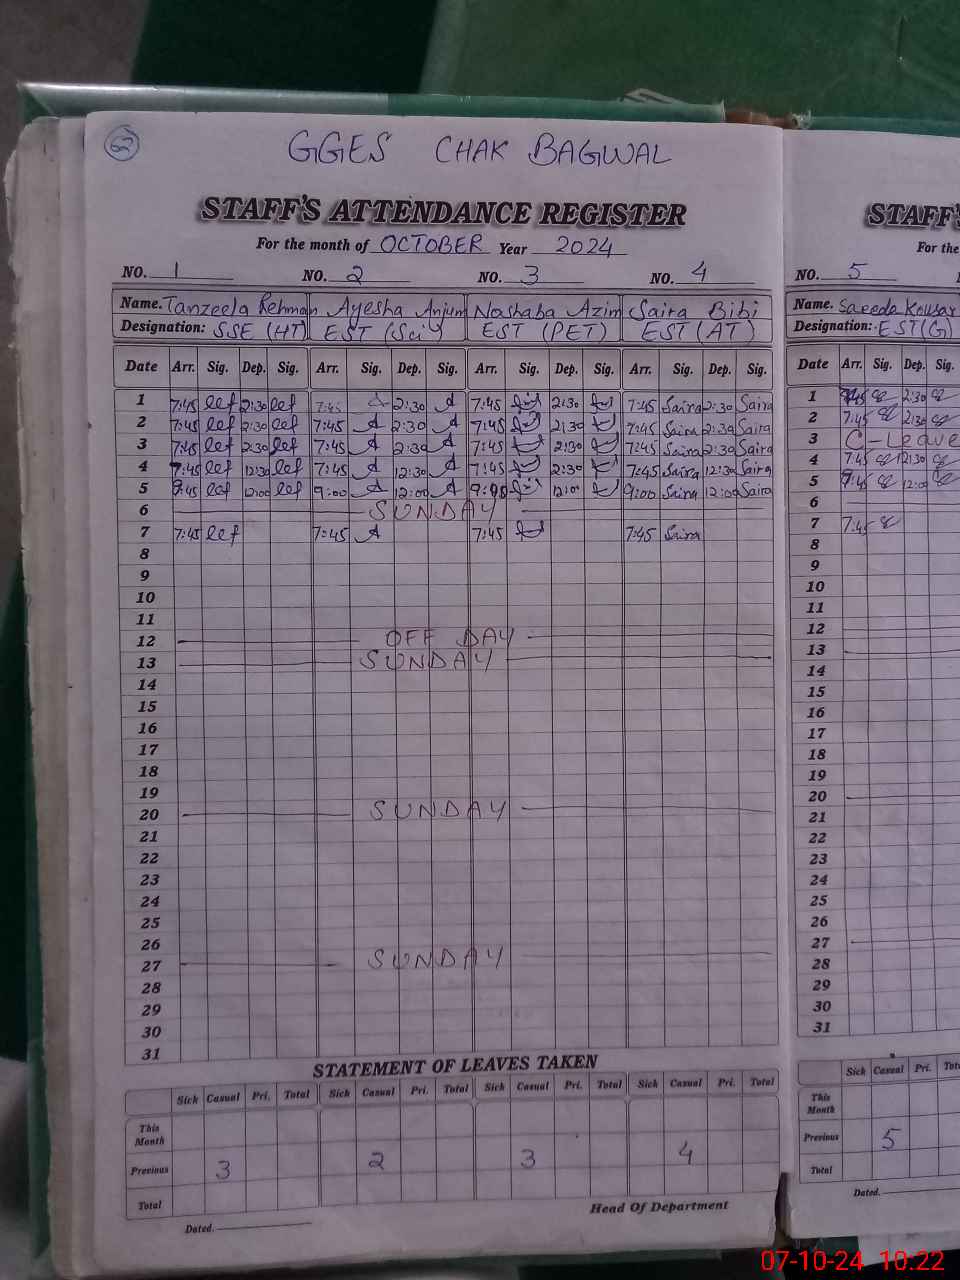 62
GGES CHAK BAGWAL
STAFF'S ATTENDANCE REGISTER
For the month of OCTOBER Year 2024
NO. 1 NO. 2 NO. 3 NO. 4
Name. Tanzeela Rehman Ayesha Anjum Noshaba Azim Saira Bibi
Designation: SSE (HT) EST (Sci) EST (PET) EST (AT)
Date Arr. Sig. Dep. Sig. Arr. Sig. Dep. Sig. Arr. Sig. Dep. Sig. Arr. Sig. Dep. Sig.
1 7:45 2:30 7:45 A 2:30 A 7:45 2:30 7:45 Saira 2:30 Saira
2 7:45 2:30 7:45 A 2:30 A 7:45 2:30 7:45 Saira 2:30 Saira
3 7:45 2:30 7:45 A 2:30 A 7:45 2:30 7:45 Saira 2:30 Saira
4 7:45 12:30 7:45 A 12:30 A 7:45 2:30 7:45 Saira 12:30 Saira
5 12:00 9:00 A 12:00 A 9:00 12:00 9:00 Saira 12:00 Saira
6 SUNDAY
7 7:45 7:45 A 7:45 7:45 Saira
8
9
10
11
12 OFF DAY
13 SUNDAY
14
15
16
17
18
19
20 SUNDAY
21
22
23
24
25
26
27 SUNDAY
28
29
30
31
STATEMENT OF LEAVES TAKEN
Sick Casual Pri. Total Sick Casual Pri. Total Sick Casual Pri. Total Sick Casual Pri. Total
This Month
Previous 3 2 3 4
Total
Head Of Department
Dated.
STAFF'S
For the
NO. 5
Name. Saeeda Kousar
Designation: EST(G)
Date Arr. Sig. Dep. Sig.
1 7:45 2:30
2 7:45 2:30
3 C-Leave
4 7:45 12:30
5 12:00
6
7 7:45
8
9
10
11
12
13
14
15
16
17
18
19
20
21
22
23
24
25
26
27
28
29
30
31
Sick Casual Pri. Tot
This Month
Previous 5
Total
Dated.
07-10-24 10:22